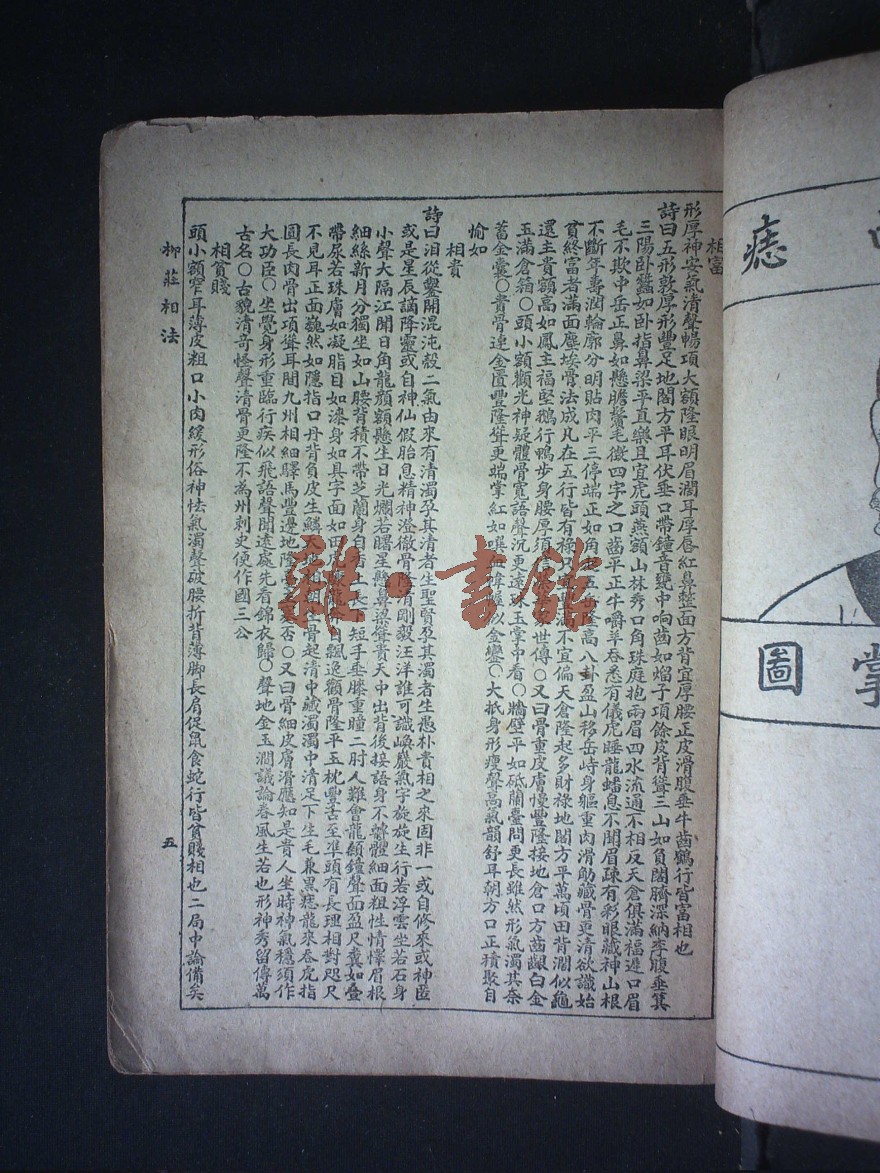 相富
形厚神安氣清聲暢項大額隆眼明眉濶耳厚唇紅鼻整面方背宜厚腰正皮滑腹垂牛齒鶴行皆富相也
詩曰五形敦厚形豐足地閣方平耳伏垂口帶鐘音甕中响齒如熘子項餘皮背聳三山如負闊臍深納李腹垂箕
三陽卧蠶如卧指鼻梁平直樂且宜虎頭燕頷山林秀口角珠庭抱兩眉四水流通不相反天倉俱滿福遲口眉
毛不欺中岳正鼻如懸膽鬢毛微四字之口齒平正牛嚼羊吞悉有儀虎睡龍蟠息不聞眉疎有彩眼藏神山根
不斷年壽潤輪廓分明貼肉平三停端正如角
岳隆高八卦盈山移岳峙身軀重肉滑觔藏骨更清欲識始
貧終富者滿面塵埃骨法成凡在五行皆有祿又
不宜偏天倉隆起多財祿地閣方平萬頃田背濶似龜
還主貴額高如鳳主福堅鵝行鴨步身腰厚須
世傳○又曰骨重皮膚慢豐隆接地倉口方齒齦白金
玉滿倉箱○頭小額顴光神凝體骨寬語聲沉更遠珠玉掌中看○牆壁平如砥蘭臺問更長雖然形氣濁其奈
蓄金囊○貴骨連金匱豐隆聳更端掌紅如噀
似金鑾○大抵身形瘦聲高氣韻舒耳朝方口正積聚自
愉如
相貴
詩曰泪從鑿開混沌殼二氣由來有清濁孕其清者生聖賢孕其濁者生愚朴貴相之來固非一或自修來或神匿
或是星辰謫降靈或自神仙假胎息精神澄徹骨
清剛毅汪洋誰可識喚嚴氣字旋旋生行若浮雲坐若石身
小聲大隔江聞日角龍顏額懸生日光爛若曙星懸鼻梁聳貴天中出背後接語身不轉體細面粗性情懌眉根
細絲新月分獨坐如山腰背積不帶芝蘭身自香上長
短手垂膝重瞳二肘人難會龍顙鐘聲面盈尺糞如疊
帶尿若珠膚如凝脂目如漆身如具字面如田
目飄逸顴骨隆平玉枕豐舌至準頭有長理相對咫尺
不見耳正面巍然如隱指口丹背負皮生鱗天地相朝生骨起清中藏濁濁中清足下生毛兼黑痣龍來吞虎指
圓長肉骨出項聳耳間九州相細驛馬豐邊地隆
否○又曰骨細皮膚滑應知是貴人坐時神氣穩須作
大功臣○坐覺身形重臨行疾似飛語聲聞遠處先看錦衣歸○聲地金玉潤議論春風生若也形神秀留傳萬
古名○古貌清奇怪聲清骨更隆不為州刺史便作國三公
相貧賤
頭小額窄耳薄皮粗口小肉緩形俗神怯氣濁聲破腰折背薄脚長肩促鼠食蛇行皆貧賤相也二局中論備矣
柳莊相法
五
痣
圖
掌
雜·書館